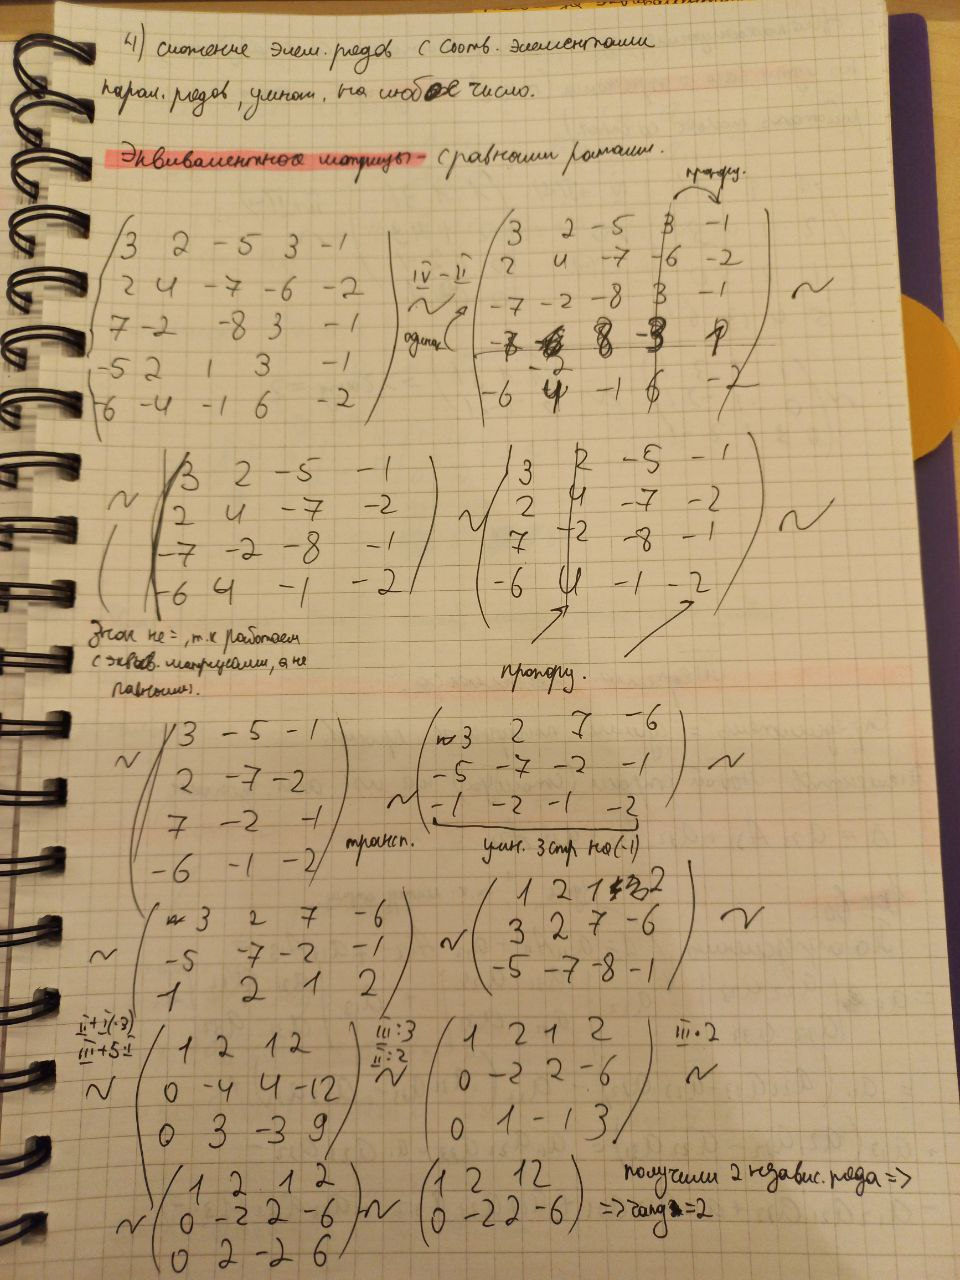 4) сложение элем. рядов с соотв. элементами
парал. рядов, умнож. на любое число.
Эквивалентные матрицы - с равными рангами.
пропорц.
3 2 -5 3 -1
2 4 -7 -6 -2
7 -2 -8 3 -1
-5 2 1 3 -1
-6 -4 -1 6 -2
IV - II
~
одинак
3 2 -5 3 -1
2 4 -7 -6 -2
-7 -2 -8 3 -1
-6 4 -1 6 -2
~
~
3 2 -5 -1
2 4 -7 -2
-7 -2 -8 -1
-6 4 -1 -2
~
3 2 -5 -1
2 4 -7 -2
7 -2 -8 -1
-6 4 -1 -2
~
Знак не =, т.к работаем
с эквив. матрицами, а не
равными.
пропорц.
~
3 -5 -1
2 -7 -2
7 -2 -1
-6 -1 -2
трансп.
~
3 2 7 -6
-5 -7 -2 -1
-1 -2 -1 -2
~
умн. 3 стр на (-1)
~
3 2 7 -6
-5 -7 -2 -1
1 2 1 2
~
1 2 1 2
3 2 7 -6
-5 -7 -8 -1
~
II+I(-3)
III+5·I
~
1 2 1 2
0 -4 4 -12
0 3 -3 9
III:3
II:2
~
1 2 1 2
0 -2 2 -6
0 1 -1 3
III·2
~
~
1 2 1 2
0 -2 2 -6
0 2 -2 6
~
1 2 1 2
0 -2 2 -6
получили 2 независ. ряда =>
=> rang = 2